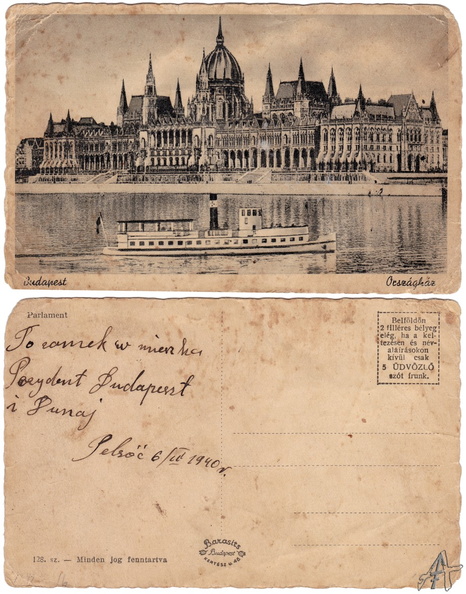 Budapest
Országház
Parlament
Belföldön
2 filléres bélyeg
elég, ha a kel-
tezésen és név-
aláírásokon
kívül csak
5 ÜDVÖZLŐ
szót írunk.
To zamek w
Prezydent Budapeszt
i Dunaj
Pelsőc 6/III 1940 r.
Karasits
Budapest
178. sz. — Minden jog fenntartva